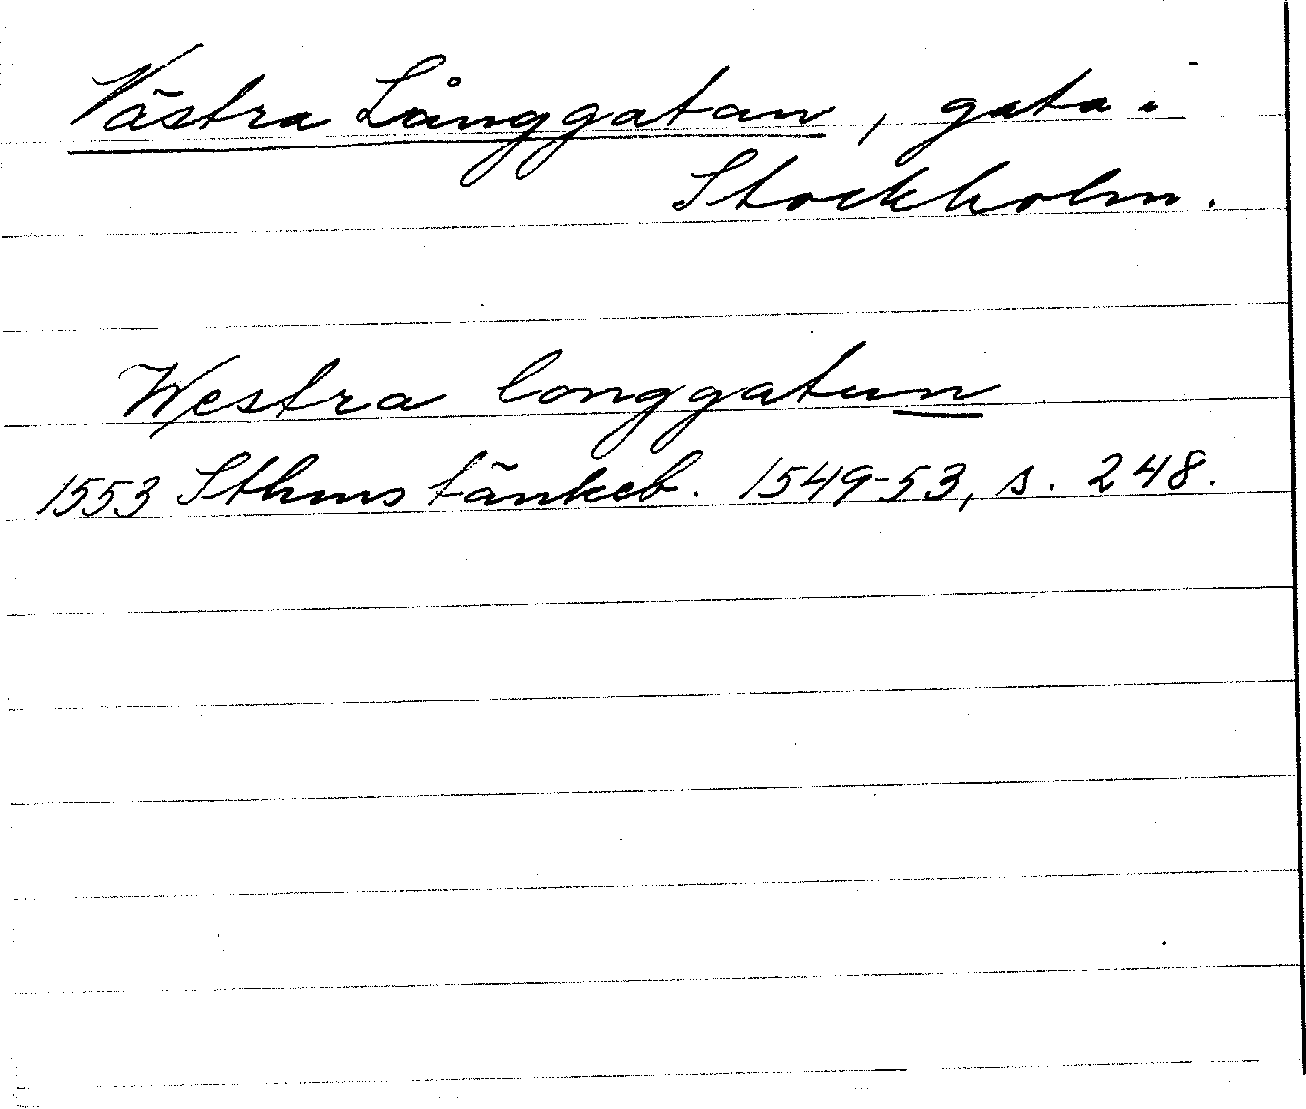 Västra Långgatan, gata i
Stockholm.
Westra longgatun
1553 Sthms tänkeb. 1549-53, s. 248.